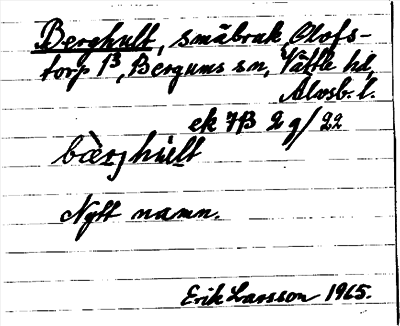 Berghult, småbruk Olofs-
torp 1³, Bergums sn, Vättle hd,
Älvsb. l.
ek 7B 2 g/22
bær̀jhúlt
Nytt namn.
Erik Larsson 1965.